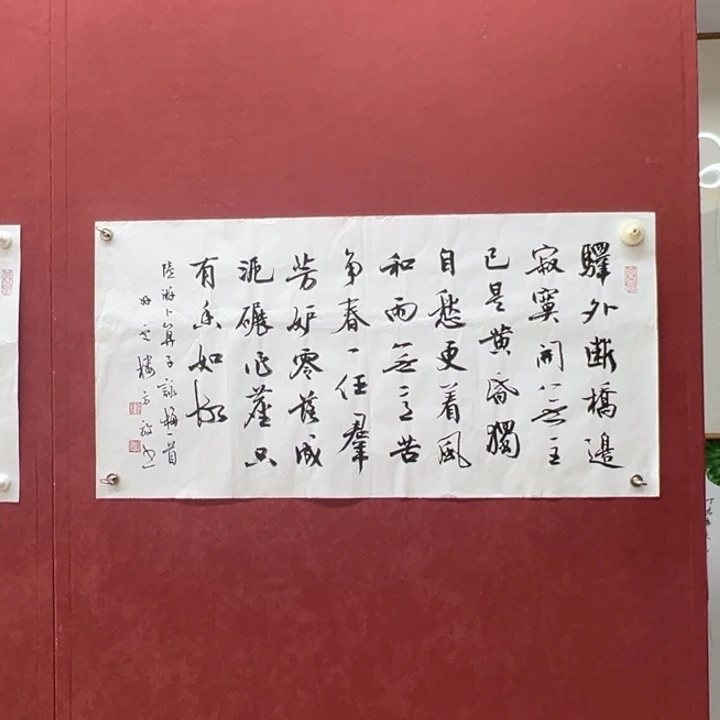 驛外斷橋邊
寂寞開無主
已是黃昏獨
自愁更着風
和雨無意苦
争春一任羣
芳妒零落成
泥碾作塵只
有香如故
陸游卜算子詠梅一首